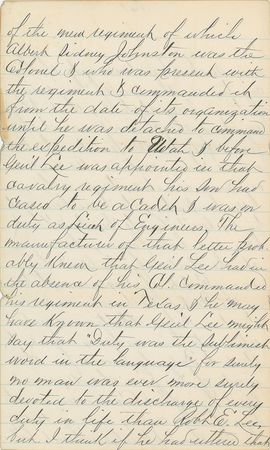 of the new regiment of which
Albert Sidney Johnston was the
Colonel & who was present with
the regiment & commanded it
from the date of its organization
until he was detached to command
the expedition to Utah & before
Gen'l Lee was appointed in that
cavalry regiment his son had
ceased to be a Cadet & was on
duty as of Engineers. The
manufacturer of that letter prob
ably knew that Gen'l Lee had in
the absence of his Col. Commanded
his regiment in Texas, & he may
have known that Gen'l Lee might
say that "Duty was the sublimest
word in the language" for surely
no man was ever more surely
devoted to the discharge of every
duty in life than Robt E. Lee,
but I think if he had written that